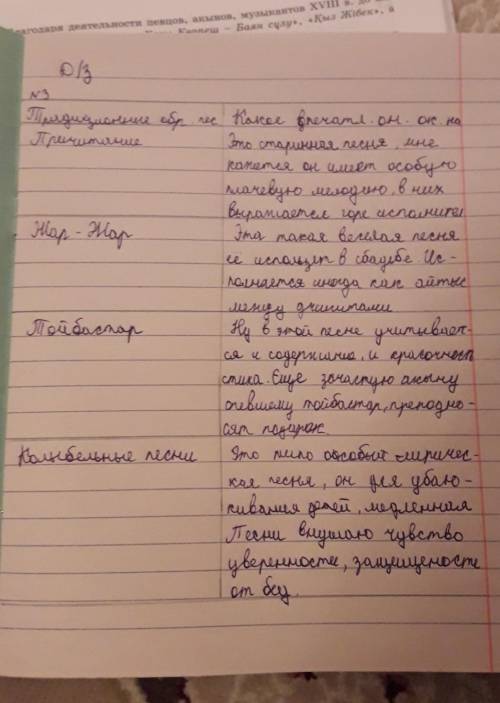 благодаря деятельности певцов, акынов, музыкантов XVIII в. до
Көрпеш – Баян сұлу», «Қыз Жібек», а
Д/З
№3
Традиционные обр. пес Какое впечатл. он. ок. на
Причитание Это старинная песня, мне
кажется он имеет особую
плачевую мелодию, в них
выражается горе исполнител
Жар - Жар Эта такая веселая песня
её использует в свадебе. Ис-
полнается иногда как айтыс
между джигитами
Тойбастар Ну в этой песне учитывает-
ся и содержание, и красочност
стиха. Еще зачастую акыну
спевшему тойбастар, преподно-
сят подарок.
Колыбельные песни Это типо особый лиричес-
кая песня, он для убаю-
кивания детей, медленная
Песни внушаю чувство
уверенности, защищеност
от бед.